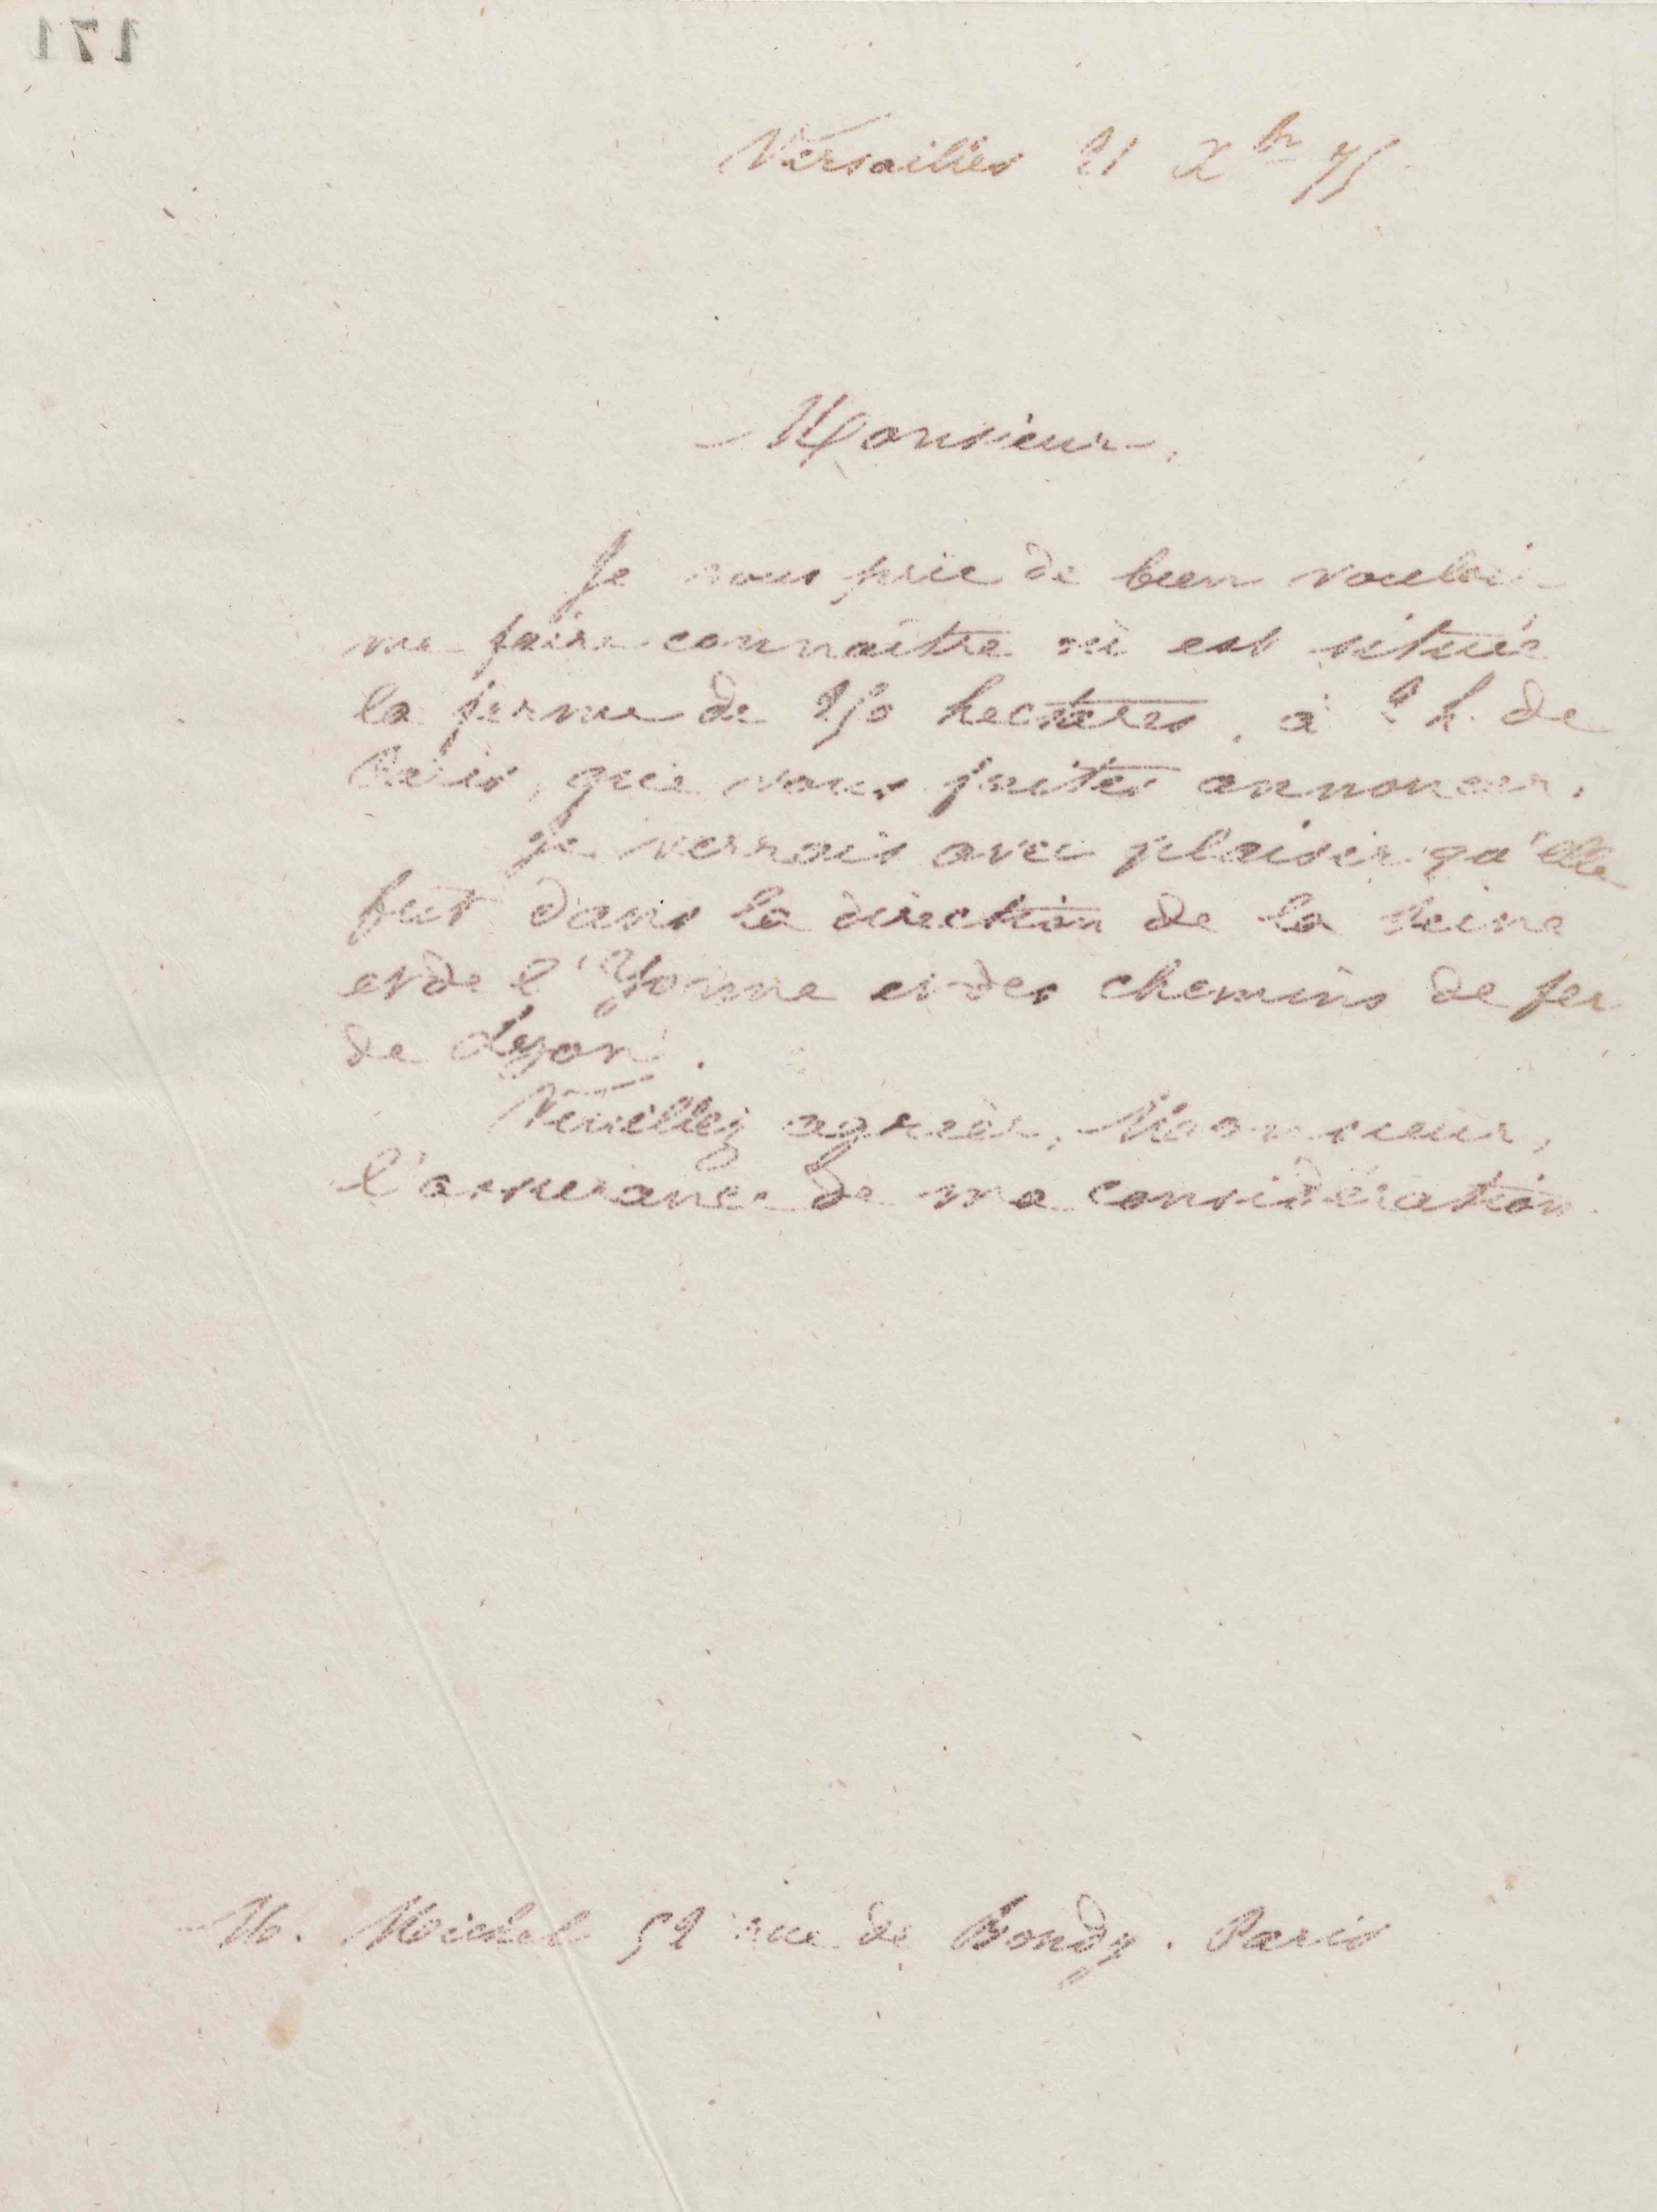 171
Versailles 21 Xbr 75
Monsieur,
Je vous prie de bien vouloir
me faire connaître où est située
la ferme de 250 hectares, à 2 h. de
Paris, que vous faites annoncer.
Je verrais avec plaisir qu'elle
fut dans la direction de la Seine
et de l'Yonne et des chemins de fer
de Lyon.
Veuillez agréer, Monsieur,
l'assurance de ma considération
M. Michel 52 rue de Bondy. Paris